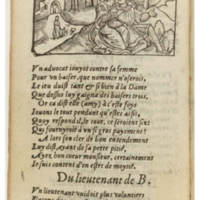 Vn aduocat iouoyt contre sa femme
Pour vn baiser, que nommer n'oserois,
Le ieu duisit tant & si bien à la Dame
Que dessus luy gaigna des baisers trois.
Or ça dist elle (amy) à c'este foys
Iouons le tout pendant qu'estes assis,
Quoy respond il, le tout, ce seroient six
Qui fourniroyt à vn si gros payement?
Alors son clerc de bon entendement
Luy dist, ayant de sa petite
Ayez bon coeur monsieur, certainement
Ie suis content d'en estre de moytié.
Du lieutenant de B.
Vn lieutenant vuidoit plus voluntiers